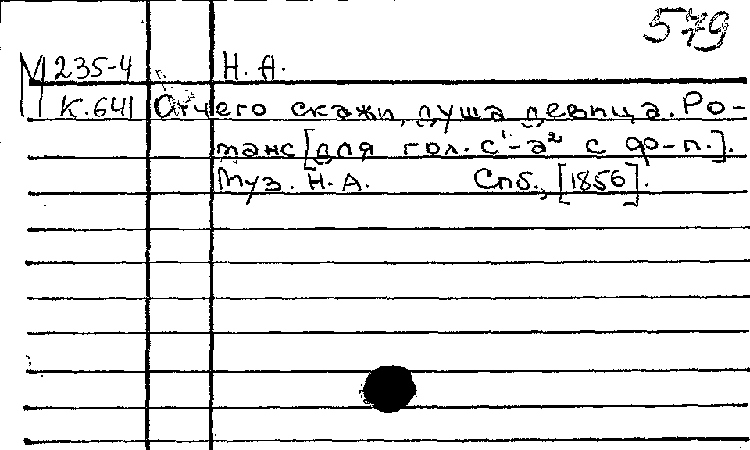 579
М 235-4 Н. А.
К.641 Отчего скажи, душа девица. Ро-
манс [для гол. c¹-a² с ф-п.].
Муз. Н. А. Спб., [1856].